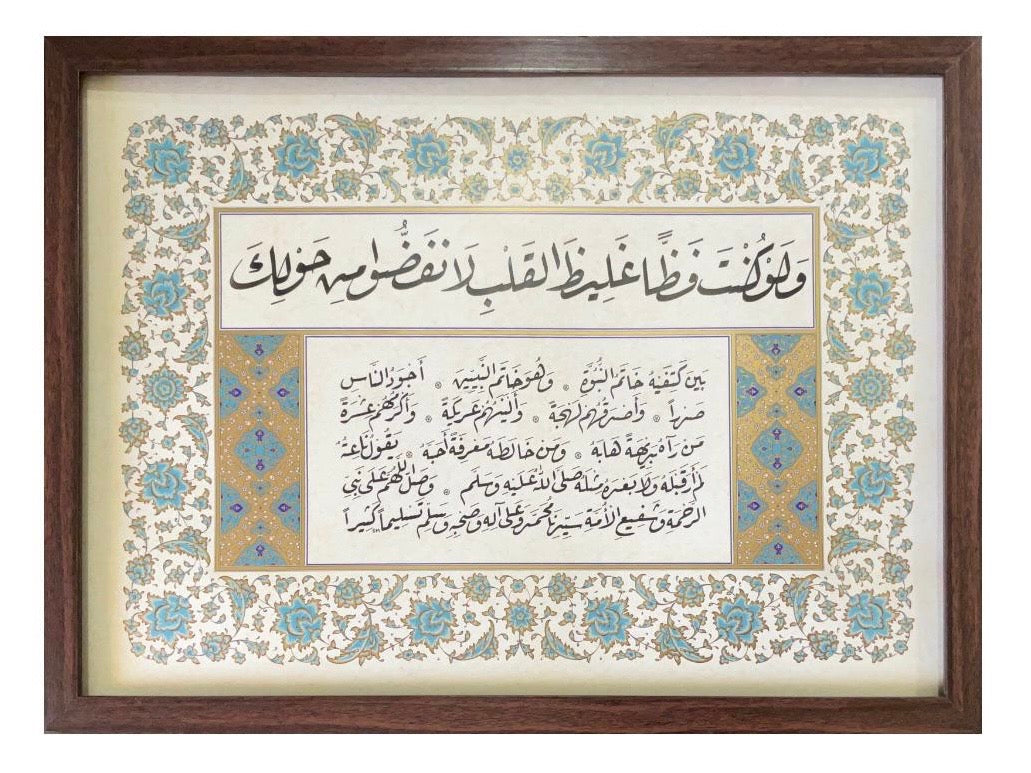 وَلَوْ كُنْتَ فَظًّا غَلِيظَ الْقَلْبِ لَانْفَضُّوا مِنْ حَوْلِكَ
بَيْنَ كَتِفَيْهِ خَاتَمُ النُّبُوَّةِ ۞ وَهُوَ خَاتَمُ النَّبِيِّينَ ۞ أَجْوَدُ النَّاسِ
صَدْرًا ۞ وَأَصْدَقُهُمْ لَهْجَةً ۞ وَأَلْيَنُهُمْ عَرِيكَةً ۞ وَأَكْرَمُهُمْ عِشْرَةً
مَنْ رَآهُ بَدِيهَةً هَابَهُ ۞ وَمَنْ خَالَطَهُ مَعْرِفَةً أَحَبَّهُ ۞ يَقُولُ نَاعِتُهُ
لَمْ أَرَ قَبْلَهُ وَلَا بَعْدَهُ مِثْلَهُ صَلَّى اللَّهُ عَلَيْهِ وَسَلَّمَ ۞ وَصَلِّ اللَّهُمَّ عَلَى نَبِيِّ
الرَّحْمَةِ وَشَفِيعِ الْأُمَّةِ سَيِّدِنَا مُحَمَّدٍ وَعَلَى آلِهِ وَصَحْبِهِ وَسَلِّمْ تَسْلِيمًا كَثِيرًا